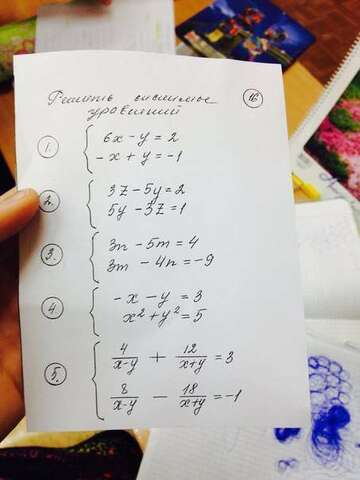 Решить системы 16
уравнений
1. 6x - y = 2
-x + y = -1
2. 3z - 5y = 2
5y - 3z = 1
3. 3n - 5m = 4
3m - 4n = -9
4. -x - y = 3
x² + y² = 5
5. 4/(x-y) + 12/(x+y) = 3
8/(x-y) - 18/(x+y) = -1